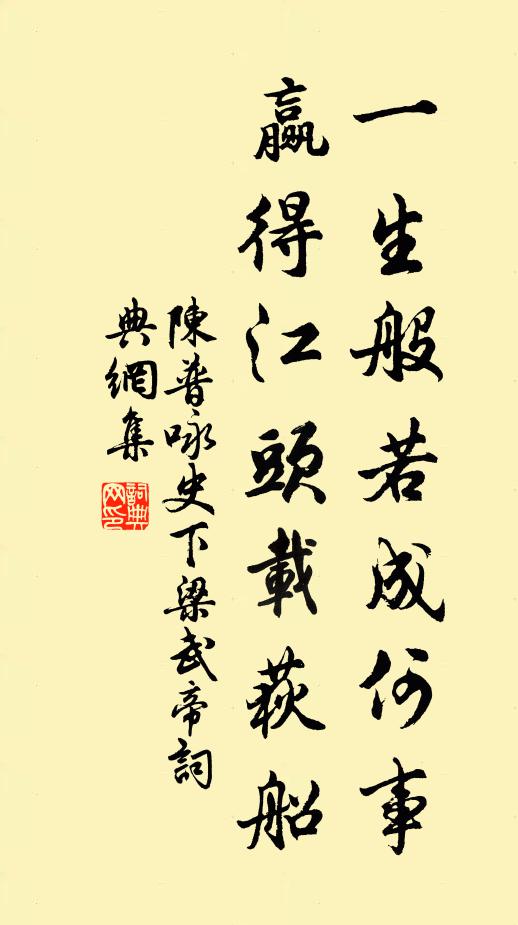 一生般若成何事
贏得江頭載荻船
陳普咏史下梁武帝詞
典網集
詞典
网印